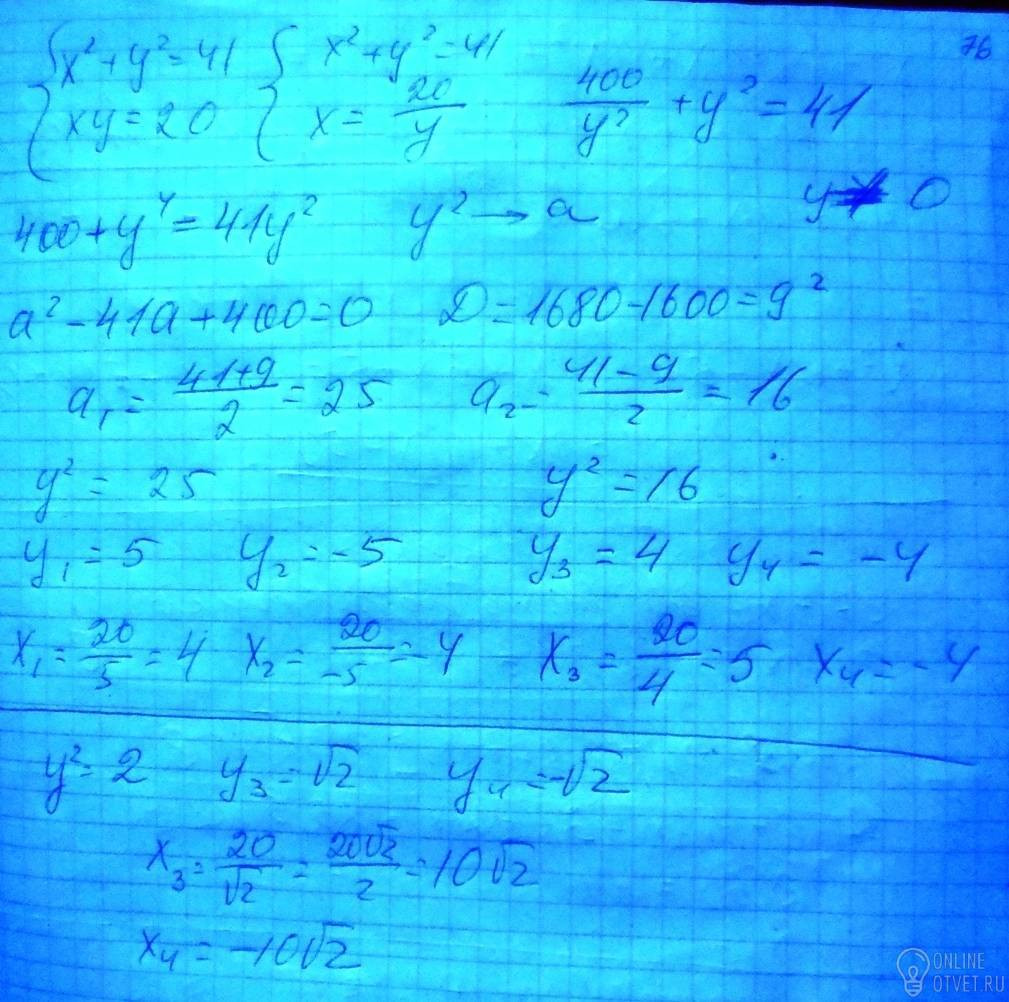 76
{x²+y²=41 {x²+y²=41
{xy=20 {x=20/y 400/y²+y²=41
400+y⁴=41y² y²→a y≠0
a²-41a+400=0 D=1680-1600=9²
a₁=(41+9)/2=25 a₂=(41-9)/2=16
y²=25 y²=16
y₁=5 y₂=-5 y₃=4 y₄=-4
x₁=20/5=4 x₂=20/-5=-4 x₃=20/4=5 x₄=-4
y²=2 y₃=√2 y₄=-√2
x₃=20/√2=20√2/2=10√2
x₄=-10√2
ONLINE
OTVET.RU